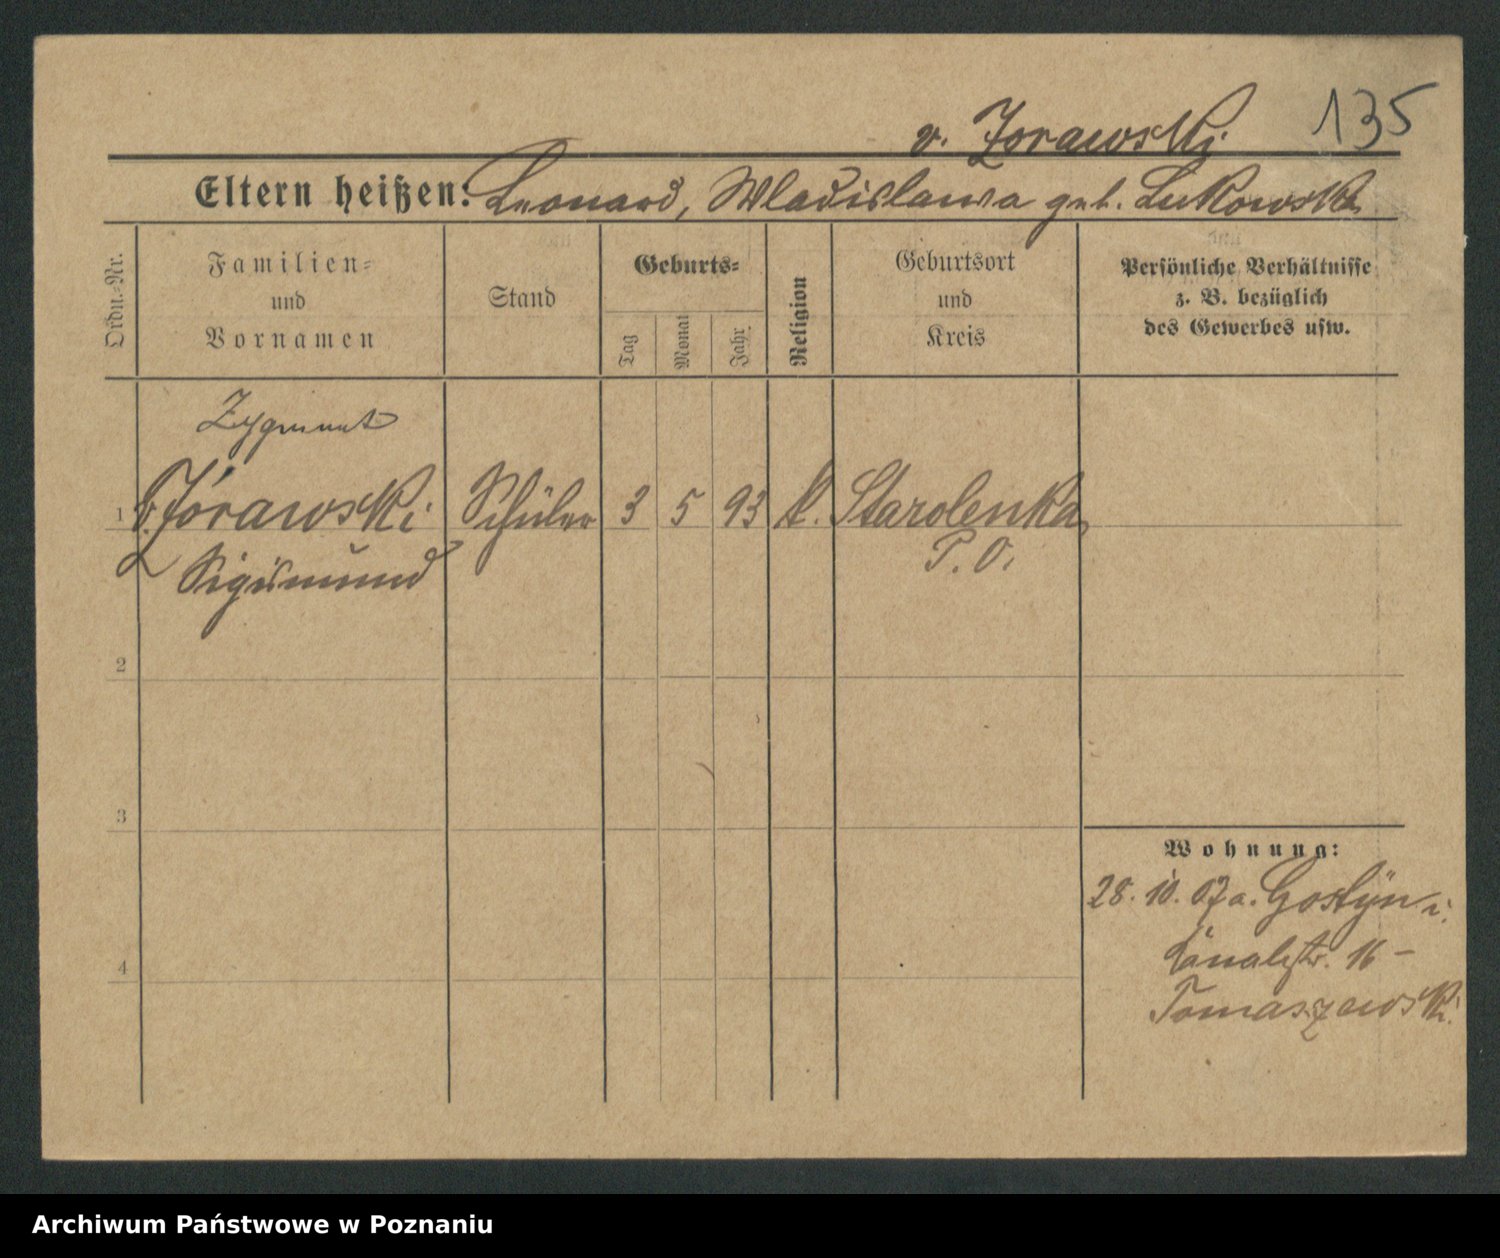 135
v. Zorawski
Eltern heißen: Leonard, Wladislawa geb. Lukowska
Ordn.-Nr.
Familien-
und
Vornamen
Stand
Geburts-
Tag
Monat
Jahr
Religion
Geburtsort
und
Kreis
Persönliche Verhältnisse
z. B. bezüglich
des Gewerbes usw.
Zygmunt
1 v. Zórawski Schüler 3 5 93 k. Starolenka
Sigismund P. O.
2
3
4
Wohnung:
28. 10. 07 a. Gostyn i.
Kanalstr. 16 -
Tomaszewski.
Archiwum Państwowe w Poznaniu